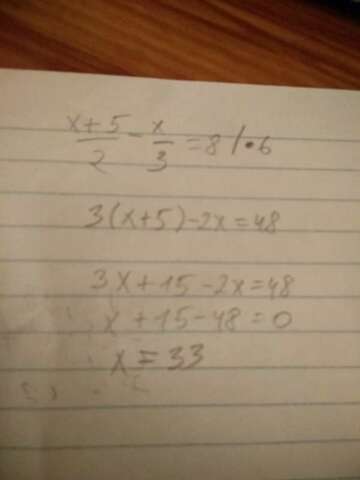 x+5/2 - x/3 = 8 /·6
3(x+5)-2x=48
3x+15-2x=48
x+15-48=0
x=33